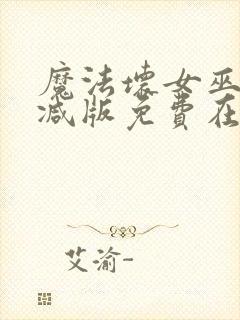 魔法壞女巫
减版免費在
艾渝-